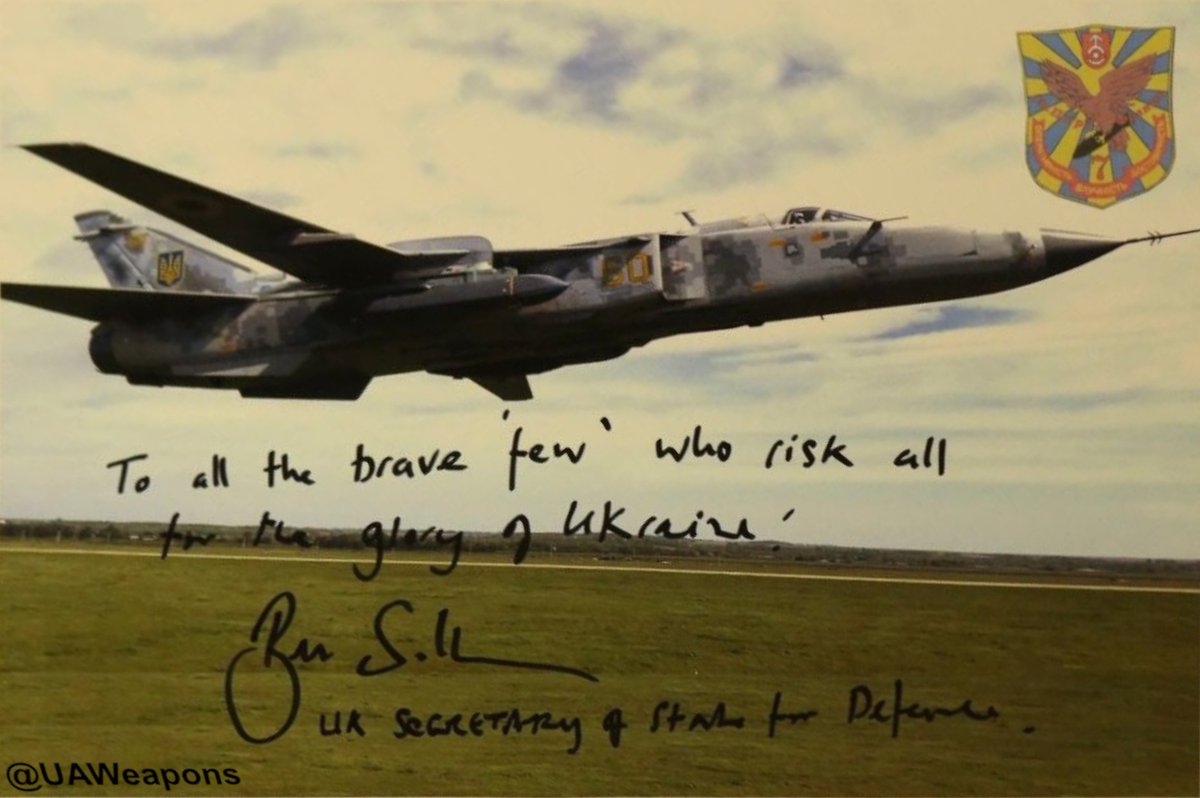 7
ВЛУЧНІСТЬ
60
To all the brave 'few' who risk all
for the glory of Ukraine!
UK SECRETARY of State for Defence.
@UAWeapons